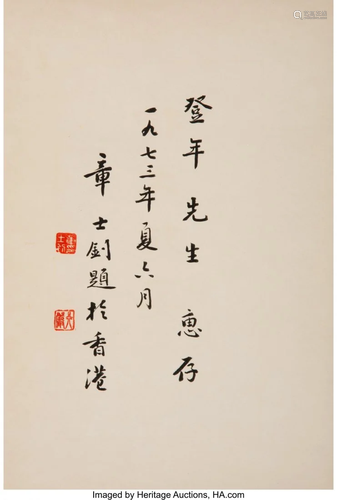 登年先生惠存
一九七三年夏六月
章士釗題於香港
Imaged by Heritage Auctions, HA.com